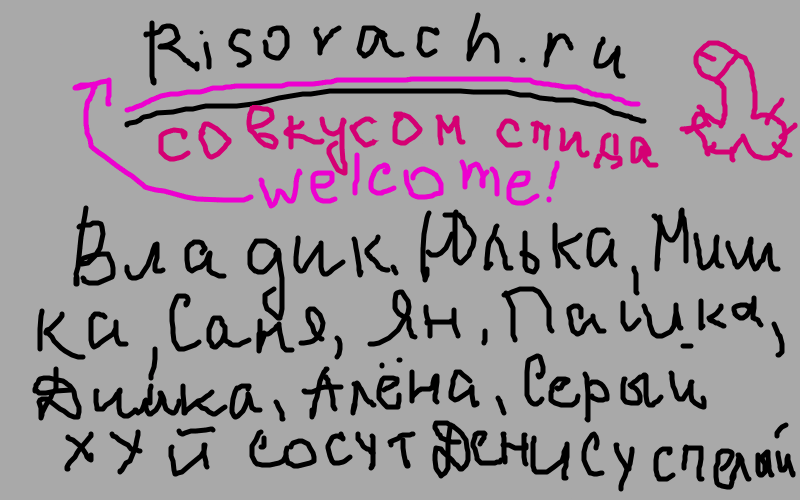 Risovach.ru
со вкусом спида
welcome!
Владик, Юлька, Миш
ка, Саня, Ян, Пашка,
Димка, Алёна, Серый
хуй сосут Денису спелый